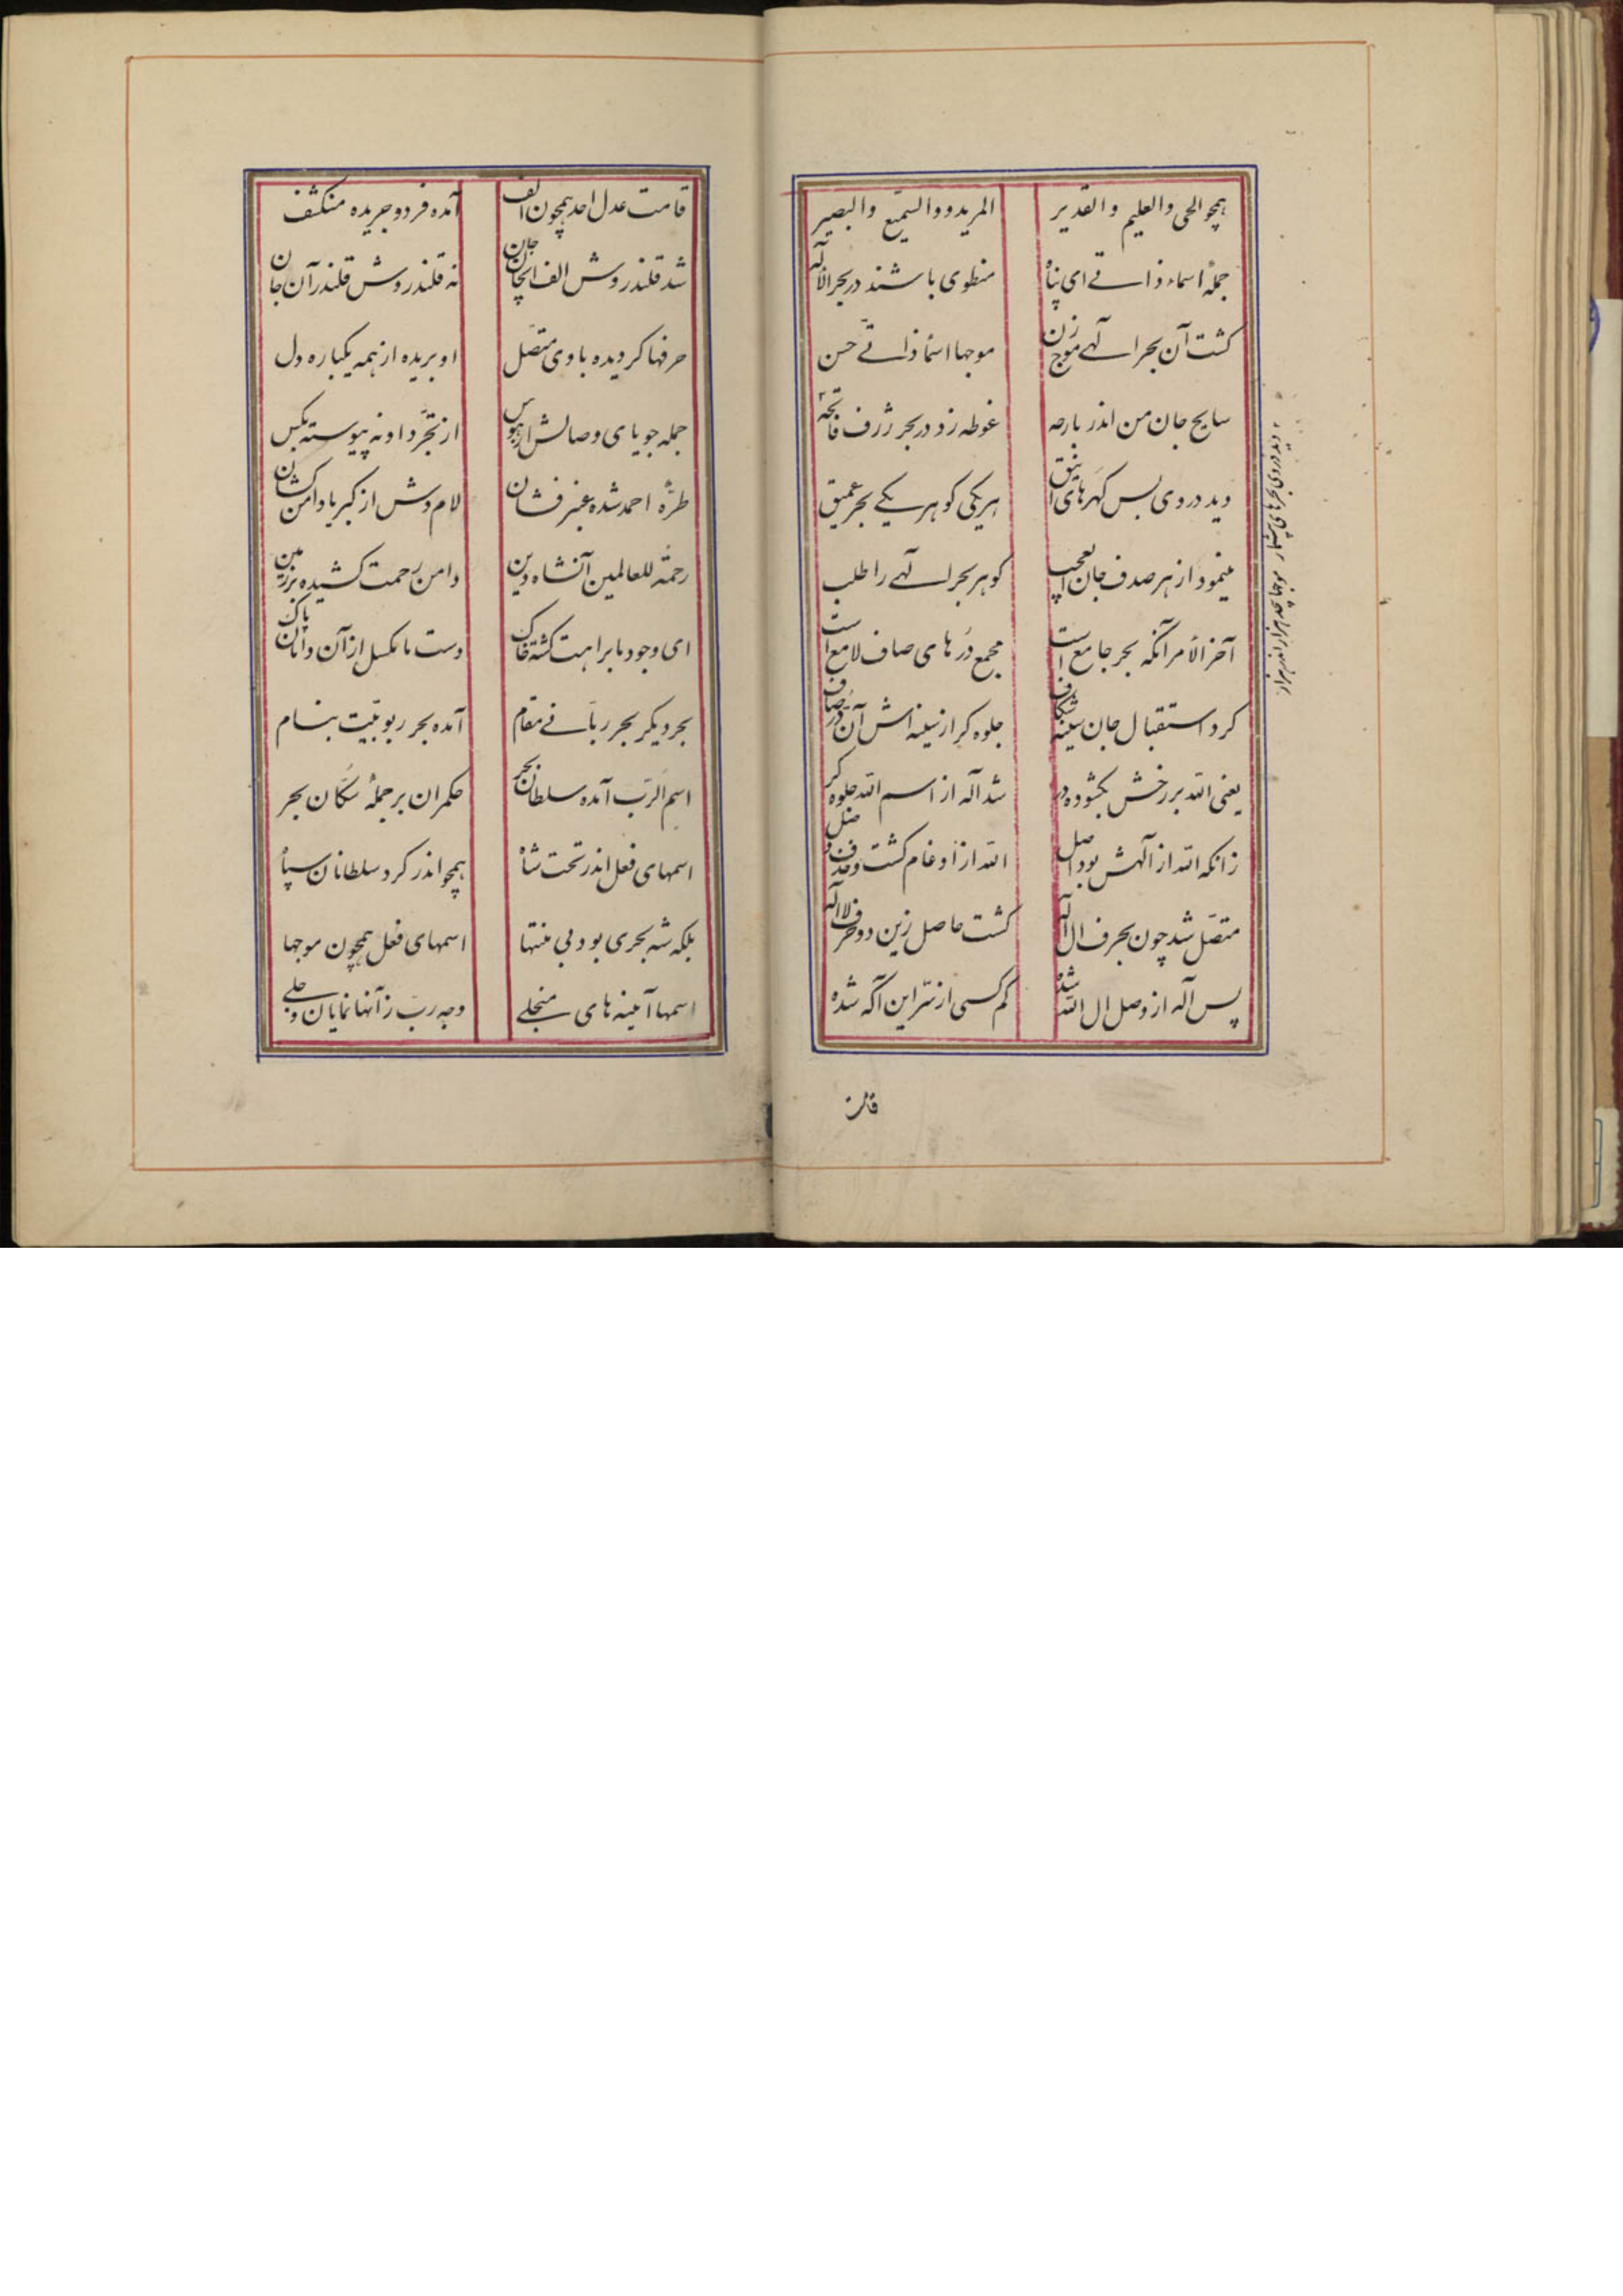 همچو الحی والعلیم والقدیر المرید والسمیع والبصیر
جملهٔ اسماء ذاتے ای پناه منطوی باشند در بحر الاله
کشت آن بحر الهے موج زن موجها اسما ذاتے حسن
سایح جان من اندر بارحه غوطه زد در بحر ژرف فاتحه
دید در وی بس کهرهای انیق هر یکی کوهر یکے بحر عمیق
مینمود از هر صدف جان العجب کوهر بحر الهے را طلب
آخر الأمر آنکه بحر جامع است مجمع دُرهای صاف لامع است
کرد استقبال جان سینه شکاف جلوه کر از سینه اش آن دُر صاف
یعنی الله بر رخش بکشوده در شد اله از اسم الله جلوه کر
زانکه الله از الهش بود اصل الله از ادغام کشت و حذف فصل
متصّل شد چون بحرف ال اله کشت حاصل زین دو حرف الاله
پس اله از وصل ال الله شده کم کسی از سّر این آکه شده
قامت عدل احد همچون الف آمده فرد و جریده منکشف
شد قلندروش الف انجان جان نه قلندروش قلندر آن جان
حرفها کردیده با وی متصّل او بریده از همه یکباره دل
جمله جویای وصالش از هوس از تجّرد او نه پیوسته بکس
طرّهٔ احمد شده عنبر فشان لام وش از کبریا دامن کشان
رحمة للعالمین آنشاه دین دامن رحمت کشیده بر زمین
ای وجود ما براهت کشته خاک دست ما مکسل از آن دامان پاک
بحر دیکر بحر ربّانے مقام آمده بحر ربوبیّت بنام
اسم الرّب آمده سلطان بحر حکمران بر جملهٔ سکّان بحر
اسمهای فعل اندر تحت شاه همچو اندر کرد سلطانان سپاه
بلکه شه بحری بود بی منتها اسمهای فعل همچون موجها
اسمها آیینه های منجلے وجه ربّ ز آنها نمایان و جلے